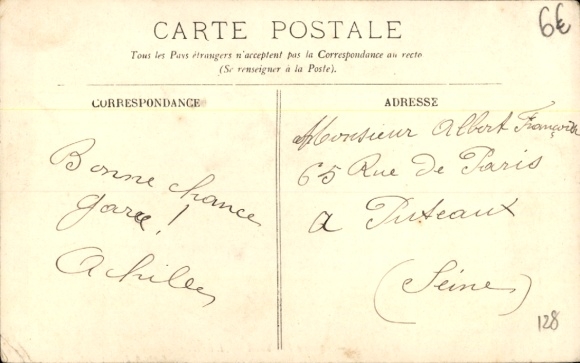 6€
CARTE POSTALE
Tous les Pays étrangers n'acceptent pas la Correspondance au recto
(Se renseigner à la Poste).
CORRESPONDANCE
Bonne chance
!
Achille
ADRESSE
Monsieur Albert
65 Rue de Paris
a Puteaux
(Seine)
128